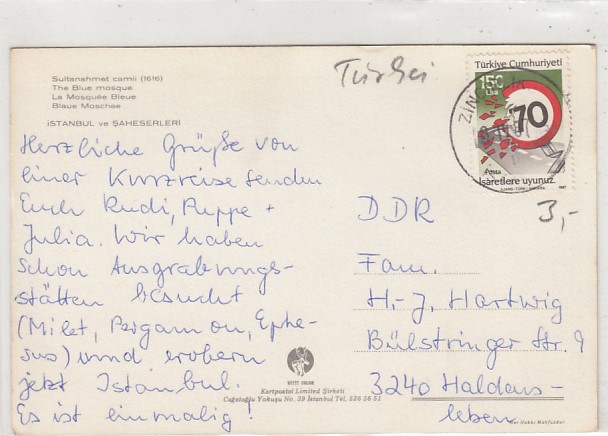 Sultanahmet camii (1616)
The Blue mosque
La Mosquée Bleue
Blaue Moschee
İSTANBUL ve ŞAHESERLERİ
Türkei
Türkiye Cumhuriyeti
150
LİRA
70
Posta
İşaretlere uyunuz.
1987
ZİNC
3,-
Herzliche Grüße von
einer Kurzreise senden
Euch Rudi, Puppe +
Julia. Wir haben
schon Ausgrabungs-
stätten besucht
(Milet, Pergamon, Ephe-
sus) und erobern
jetzt Istanbul.
Es ist einmalig!
DDR
Fam.
H.-J. Hartwig
Bülstringer Str. 9
3240 Haldens-
leben
KESKİN COLOR
Kartpostal Limited Şirketi
Cağaloğlu Yokuşu No. 39 İstanbul Tel. 526 56 51
Her Hakkı Mahfuzdur